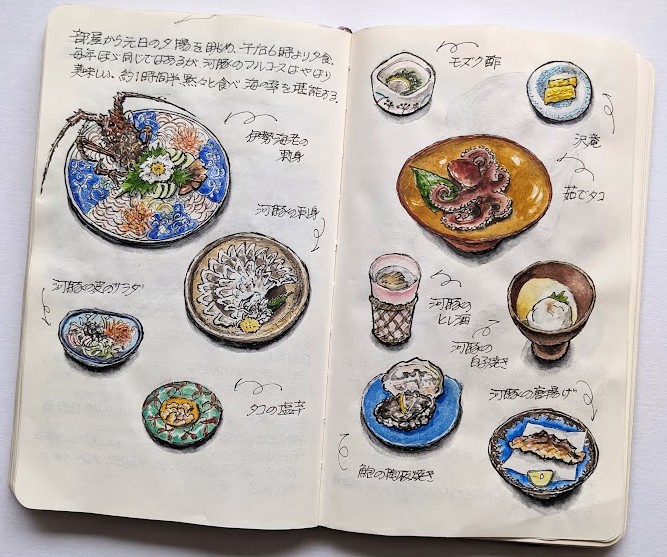 部屋から元日の夕陽を眺め、午后6時より夕食。
毎年ほぼ同じではあるが、河豚のフルコースはやはり
美味しい。約1時間半、黙々と食べ 海の幸を堪能する。
伊勢海老の
刺身
河豚の刺身
河豚の皮のサラダ
タコの塩辛
モズク酢
沢庵
茹でタコ
河豚の
ヒレ酒
河豚の
白子焼き
河豚の唐揚げ
鮑の陶板焼き